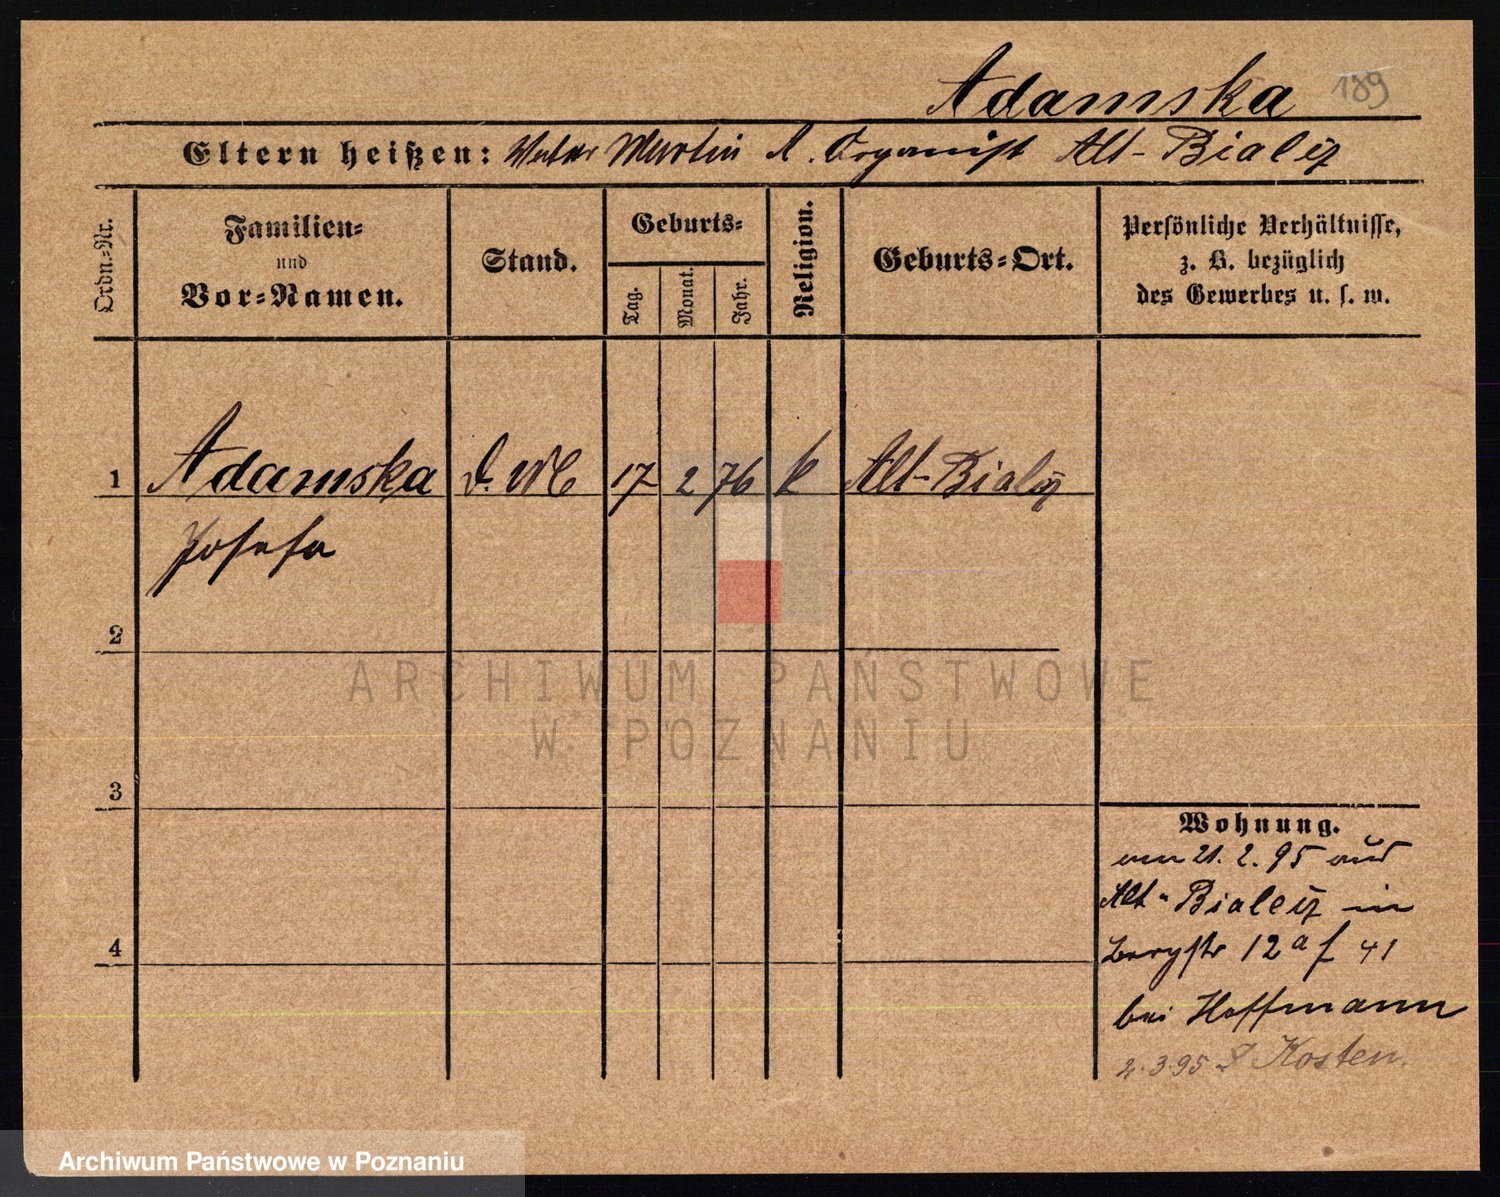 Adamska 189
Eltern heißen: Vater Martin A. Organist Alt-Bialcz
Ordn.-Nr.
Familien-
und
Vor-Namen.
Stand.
Geburts-
Tag.
Monat.
Jahr.
Religion.
Geburts-Ort.
Persönliche Verhältnisse,
z. B. bezüglich
des Gewerbes u. s. w.
1 Adamska D. 17 2 76 k Alt-Bialcz
Josefa
2
3
4
Wohnung.
am 21. 2. 95 aus
Alt-Bialcz in
Bergstr 12a f 41
bei Hoffmann
2.3.95 Kosten.
ARCHIWUM PAŃSTWOWE
W POZNANIU
Archiwum Państwowe w Poznaniu